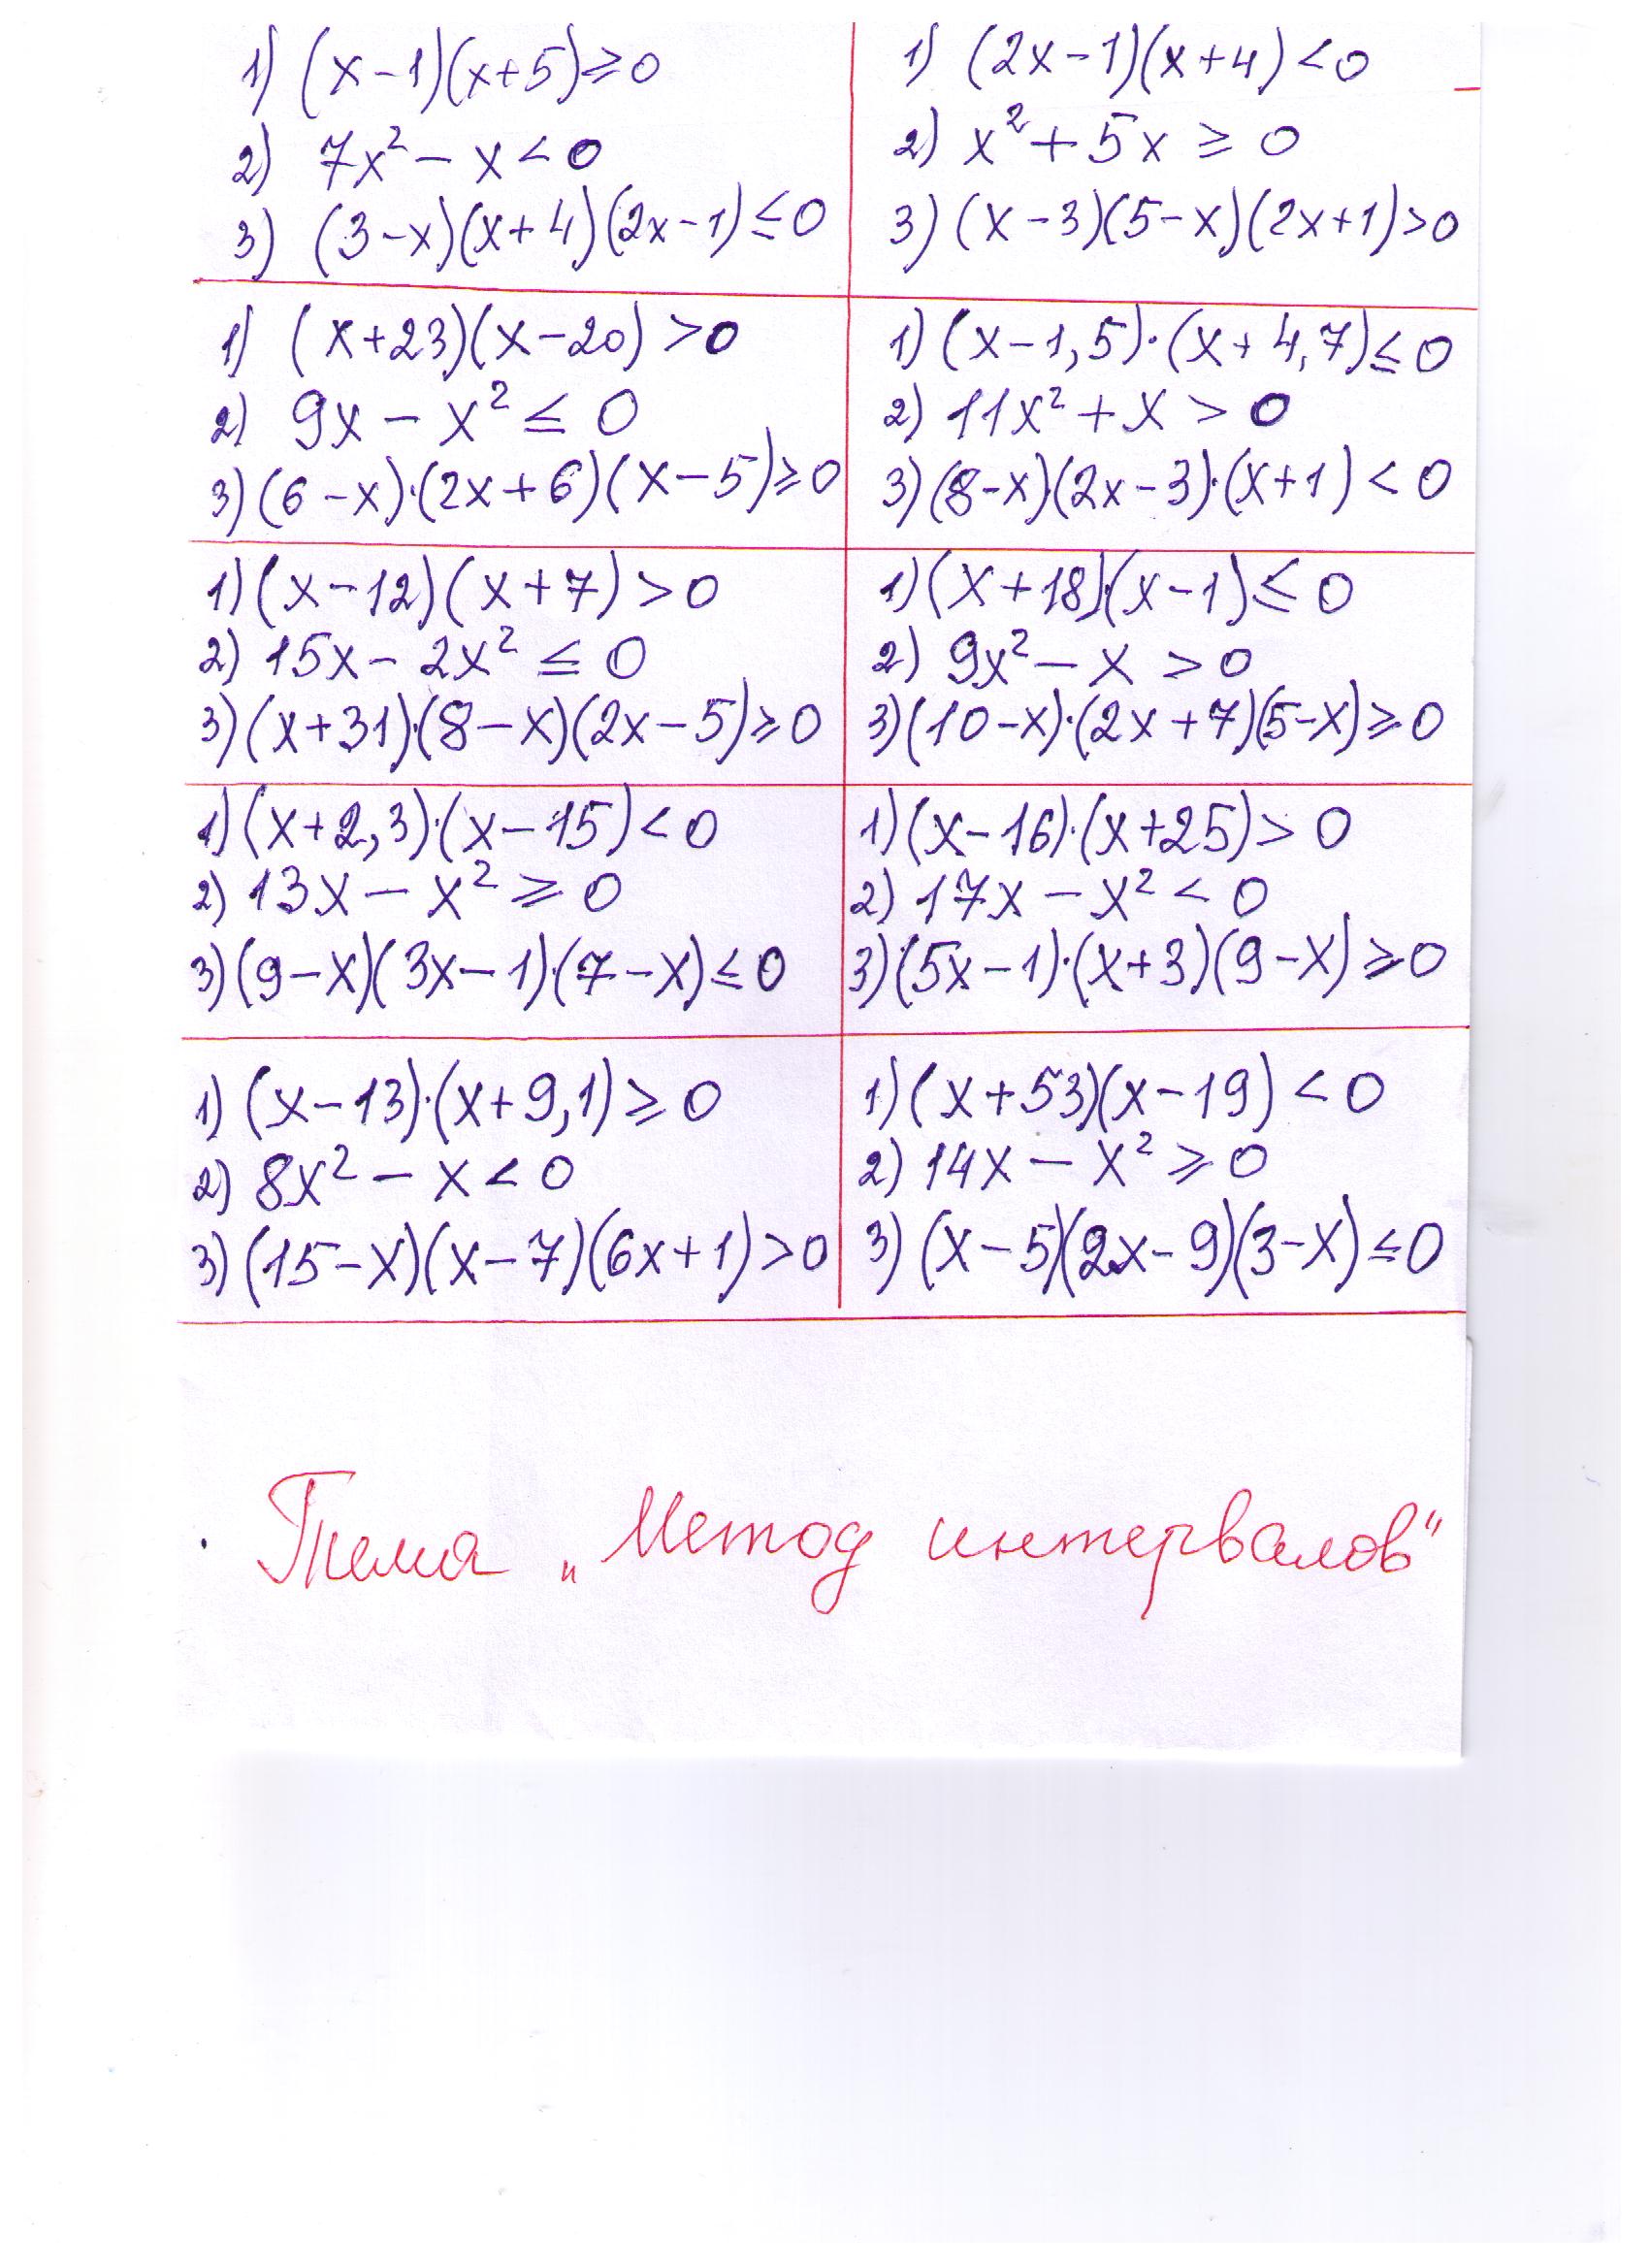 1) (x-1)(x+5)≥0
2) 7x²-x<0
3) (3-x)(x+4)(2x-1)≤0
1) (2x-1)(x+4)<0
2) x²+5x≥0
3) (x-3)(5-x)(2x+1)>0
1) (x+23)(x-20)>0
2) 9x-x²≤0
3) (6-x)·(2x+6)(x-5)≥0
1) (x-1,5)·(x+4,7)≤0
2) 11x²+x>0
3) (8-x)(2x-3)·(x+1)<0
1) (x-12)(x+7)>0
2) 15x-2x²≤0
3) (x+31)·(8-x)(2x-5)≥0
1) (x+18)·(x-1)≤0
2) 9x²-x>0
3) (10-x)·(2x+7)(5-x)≥0
1) (x+2,3)·(x-15)<0
2) 13x-x²≥0
3) (9-x)(3x-1)·(7-x)≤0
1) (x-16)·(x+25)>0
2) 17x-x²<0
3) (5x-1)·(x+3)(9-x)≥0
1) (x-13)·(x+9,1)≥0
2) 8x²-x<0
3) (15-x)(x-7)(6x+1)>0
1) (x+53)(x-19)<0
2) 14x-x²≥0
3) (x-5)(2x-9)(3-x)≤0
Тема „Метод интервалов“